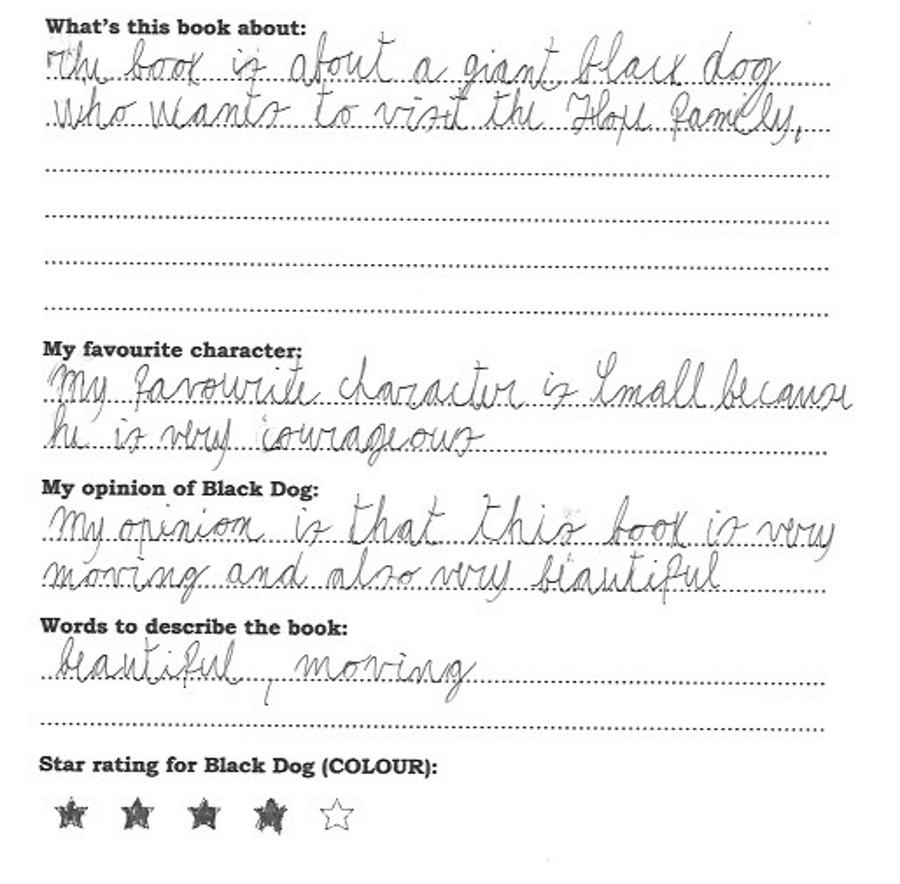 What's this book about:
The book is about a giant black dog
who wants to visit the Hope family.
My favourite character:
My favourite character is Small because
he is very courageous
My opinion of Black Dog:
My opinion is that this book is very
moving and also very beautiful
Words to describe the book:
beautiful, moving
Star rating for Black Dog (COLOUR):